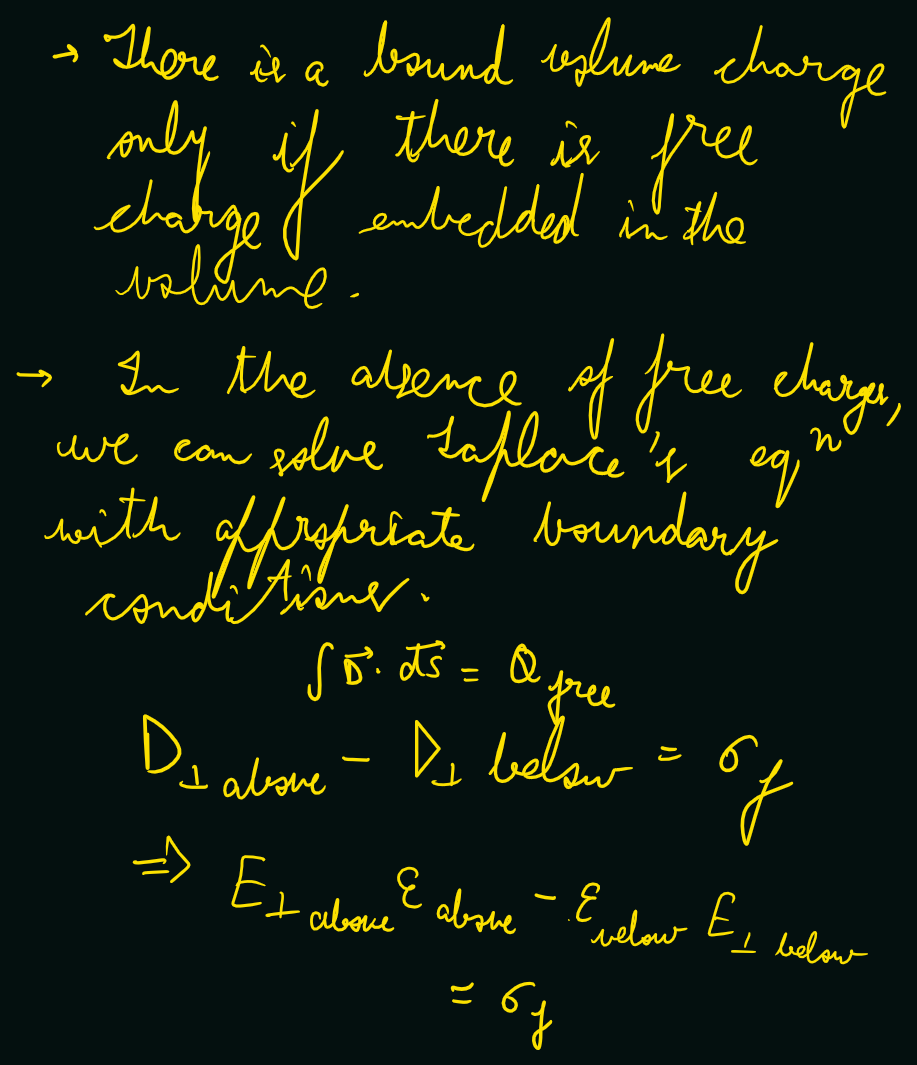 → There is a bound volume charge
only if there is free
charge embedded in the
volume.
→ In the absence of free charges,
we can solve Laplace's eqⁿ
with appropriate boundary
conditions.
∫ D⃗ · ds⃗ = Q free
D⊥ above - D⊥ below = σf
⇒ E⊥ above ε above - ε below E⊥ below
= σf